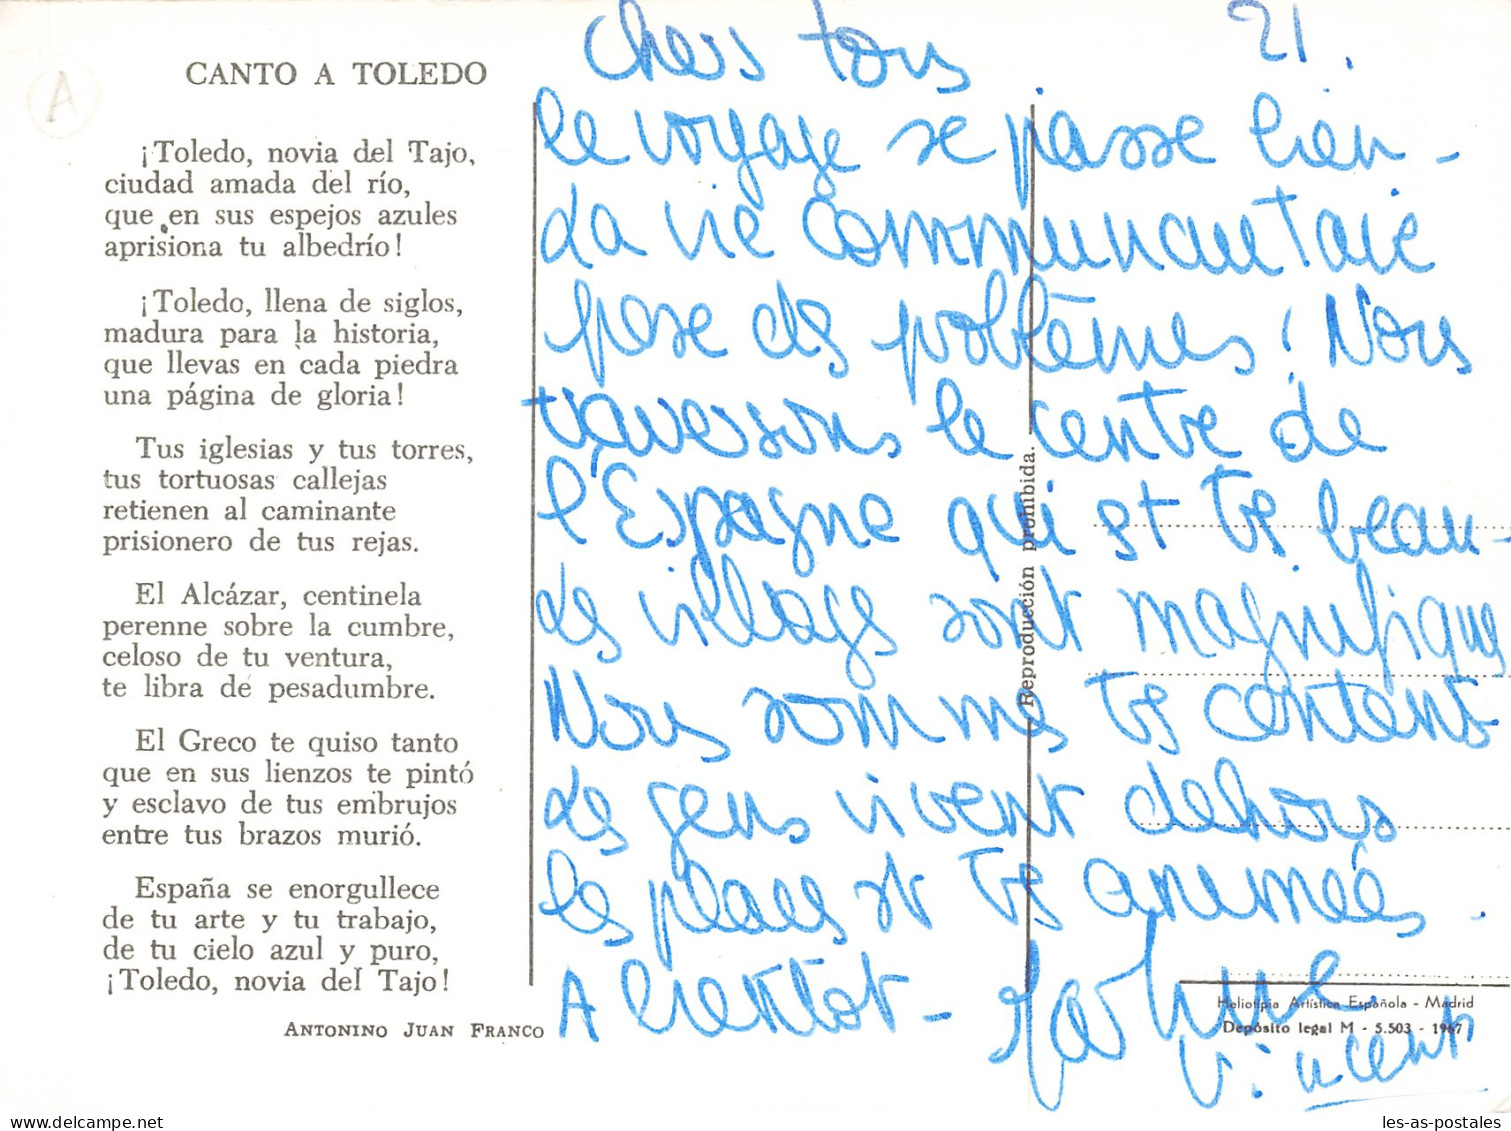 A
CANTO A TOLEDO
¡Toledo, novia del Tajo,
ciudad amada del río,
que en sus espejos azules
aprisiona tu albedrío!
¡Toledo, llena de siglos,
madura para la historia,
que llevas en cada piedra
una página de gloria!
Tus iglesias y tus torres,
tus tortuosas callejas
retienen al caminante
prisionero de tus rejas.
El Alcázar, centinela
perenne sobre la cumbre,
celoso de tu ventura,
te libra de pesadumbre.
El Greco te quiso tanto
que en sus lienzos te pintó
y esclavo de tus embrujos
entre tus brazos murió.
España se enorgullece
de tu arte y tu trabajo,
de tu cielo azul y puro,
¡Toledo, novia del Tajo!
ANTONINO JUAN FRANCO
21.
Chers tous
le voyage se passe bien -
La vie communautaire
pose des problèmes! Nous
traversons le centre de
l'Espagne qui est très beau -
Les villages sont magnifiques
Nous sommes très contents
Les gens vivent dehors
les places st très animées.
A bientôt -
Vincent
Reproducción prohibida.
Heliotipia Artística Española - Madrid
Depósito legal M - 5.503 - 1967
les-as-postales